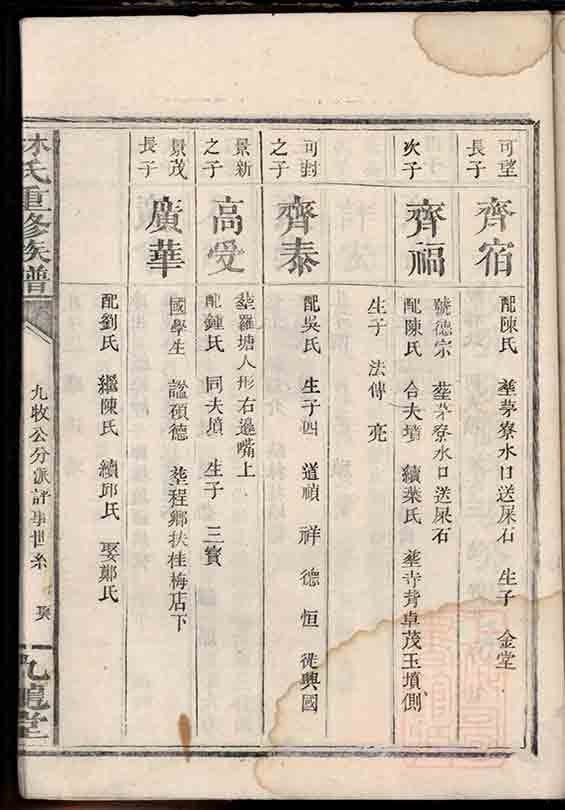 可望
長子
齊宿
配陳氏 塟茅寮水口送屎石 生子 金堂
次子
齊福
號德宗 塟茅寮水口送屎石
配陳氏 合夫墳 續葉氏 塟寺背卓茂玉墳側
生子 法傳 亮
可封
之子
齊泰
配吳氏 生子四 道禎 祥 德 恒 徙興國
景新
之子
高受
塟羅塘人形右邊嘴上
配鍾氏 同夫墳 生子 三寶
景茂
長子
廣華
國學生 諡碩德 塟程鄉扶桂梅店下
配劉氏 繼陳氏 續邱氏 娶鄭氏
林氏重修族譜
九牧公分派評事世系
九龍堂